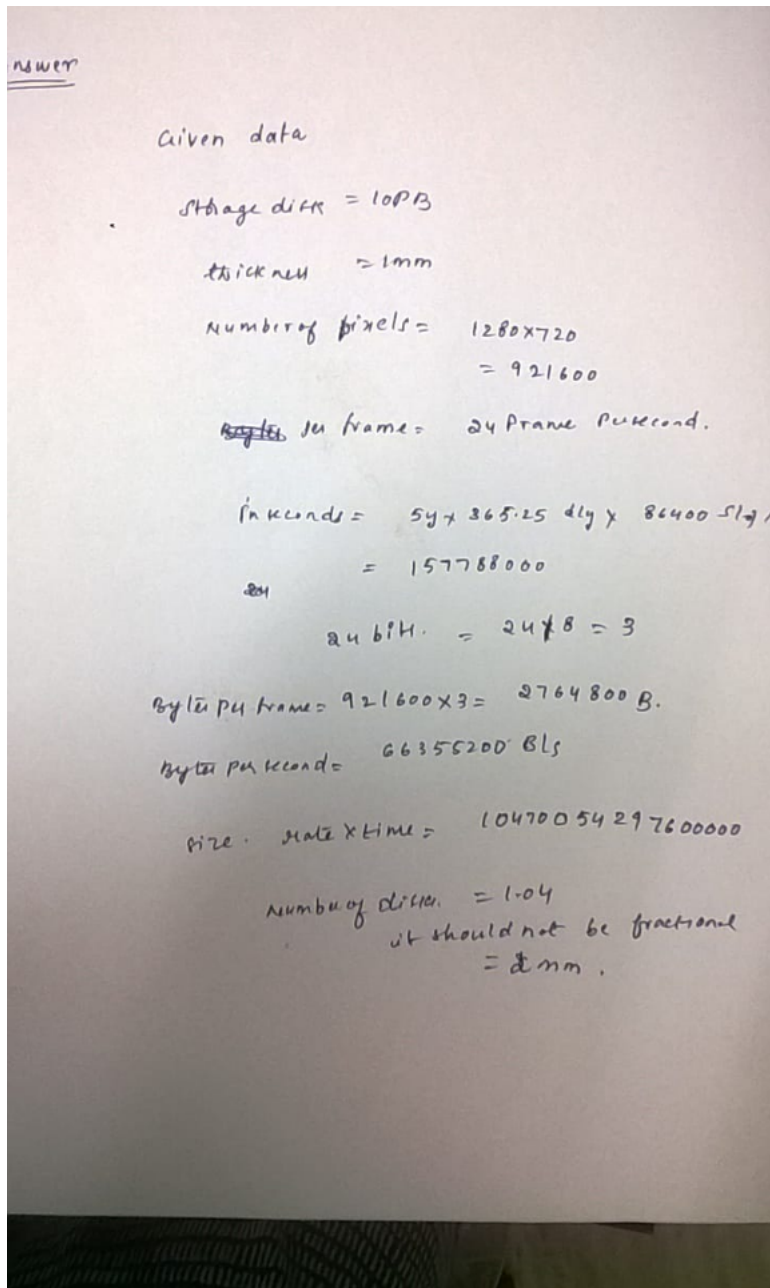 nswer
Given data
Storage disk = 10PB
thickness = 1mm
Number of pixels = 1280x720
= 921600
per frame = 24 frame per second.
in seconds = 5y x 365.25 d/y x 86400 s/d
= 157788000
24 bit. = 24/8 = 3
Bytes per frame = 921600x3 = 2764800 B.
Bytes per second = 66355200 B/s
size. rate x time = 10470054297600000
Number of disks. = 1.04
it should not be fractional
= mm.